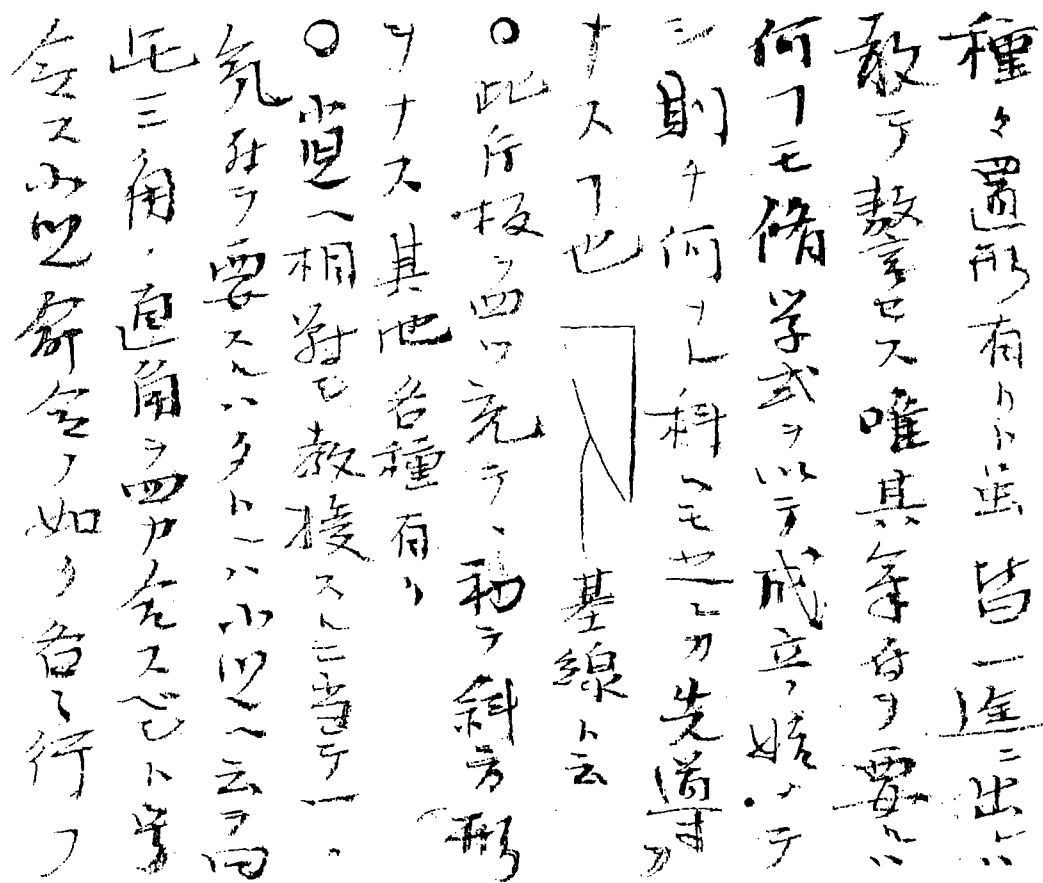 種々置形有リト虽皆一途ニ出レハ
敢テ贅言セス唯其 ヲ要スレハ
何ヿモ脩学式ヲ以テ成立ノ始メテ
シ則チ何ヲレ科ヘモ之レカ先導ヲ
ナスヿ也
基線ト云
○此斤板ヲ四ツ充テ、動ラ斜方形
ヲナス其他各種有リ
○ 皃ヘ相対モ教授スルニ当テ一
気 ヲ要スルハタトヘハ小児ヘ云ヲ向
此三角、直角ヲ四カ合スベシト
令ス小児命令ノ如ク各々行フ